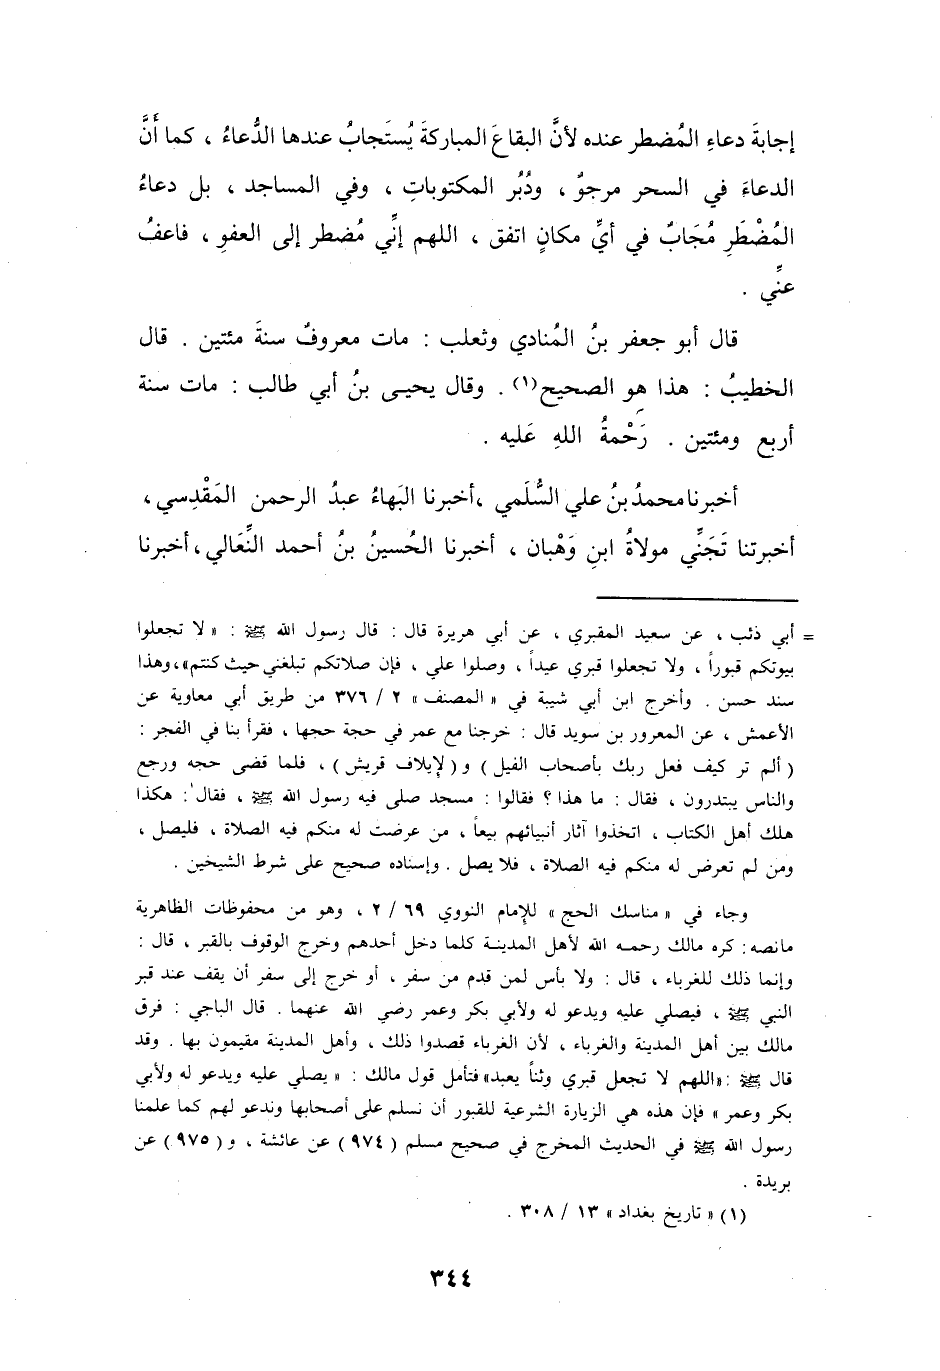 إجابةَ دعاءِ المُضطر عنده لأنَّ البقاعَ المباركةَ يُستَجابُ عندها الدُّعاءُ ، كما أَنَّ
الدعاءَ في السحر مرجوٌ ، ودُبُر المكتوباتِ ، وفي المساجد ، بل دعاءُ
المُضْطَرِ مُجَابٌ في أيِّ مكانٍ اتفق ، اللهم إنِّي مُضطر إلى العفوِ ، فاعفُ
عنِّي .
قال أبو جعفر بنُ المُنادي وثعلب : مات معروفٌ سنةَ مئتين . قال
الخطيبُ : هذا هو الصحيح(١) . وقال يحيى بنُ أبي طالب : مات سنة
أربع ومئتين . رَحْمةُ اللهِ عَليه .
أخبرنا محمدُ بنُ علي السُّلَمي ،أخبرنا البَهاءُ عبدُ الرحمن المَقْدِسي ،
أخبرتنا تَجَنِّي مولاةُ ابنِ وَهْبان ، أخبرنا الحُسينُ بنُ أحمد النِّعَالي ،أخبرنا
= أبي ذئب ، عن سعيد المقبري ، عن أبي هريرة قال : قال رسول الله ﷺ : « لا تجعلوا
بيوتكم قبوراً ، ولا تجعلوا قبري عيداً ، وصلوا علي ، فإن صلاتكم تبلغني حيث كنتم» ، وهذا
سند حسن . وأخرج ابن أبي شيبة في « المصنف » ٢ / ٣٧٦ من طريق أبي معاوية عن
الأعمش ، عن المعرور بن سويد قال : خرجنا مع عمر في حجة حجها ، فقرأ بنا في الفجر :
( ألم تر كيف فعل ربك بأصحاب الفيل ) و ( لإيلاف قريش ) ، فلما قضى حجه ورجع
والناس يبتدرون ، فقال : ما هذا ؟ فقالوا : مسجد صلى فيه رسول الله ﷺ ، فقال : هكذا
هلك أهل الكتاب ، اتخذوا آثار أنبيائهم بيعاً ، من عرضت له منكم فيه الصلاة ، فليصل ،
ومن لم تعرض له منكم فيه الصلاة ، فلا يصل . وإسناده صحيح على شرط الشيخين .
وجاء في « مناسك الحج » للإمام النووي ٦٩ / ٢ ، وهو من محفوظات الظاهرية
ما نصه : كره مالك رحمه الله لأهل المدينة كلما دخل أحدهم وخرج الوقوف بالقبر ، قال :
وإنما ذلك للغرباء ، قال : ولا بأس لمن قدم من سفر ، أو خرج إلى سفر أن يقف عند قبر
النبي ﷺ ، فيصلي عليه ويدعو له ولأبي بكر وعمر رضي الله عنهما . قال الباجي : فرق
مالك بين أهل المدينة والغرباء ، لأن الغرباء قصدوا ذلك ، وأهل المدينة مقيمون بها . وقد
قال ﷺ : «اللهم لا تجعل قبري وثناً يعبد» فتأمل قول مالك : « يصلي عليه ويدعو له ولأبي
بكر وعمر » فإن هذه هي الزيارة الشرعية للقبور أن نسلم على أصحابها وندعو لهم كما علمنا
رسول الله ﷺ في الحديث المخرج في صحيح مسلم ( ٩٧٤ ) عن عائشة ، و ( ٩٧٥ ) عن
بريدة .
(١) « تاريخ بغداد » ١٣ / ٣٠٨ .
٣٤٤